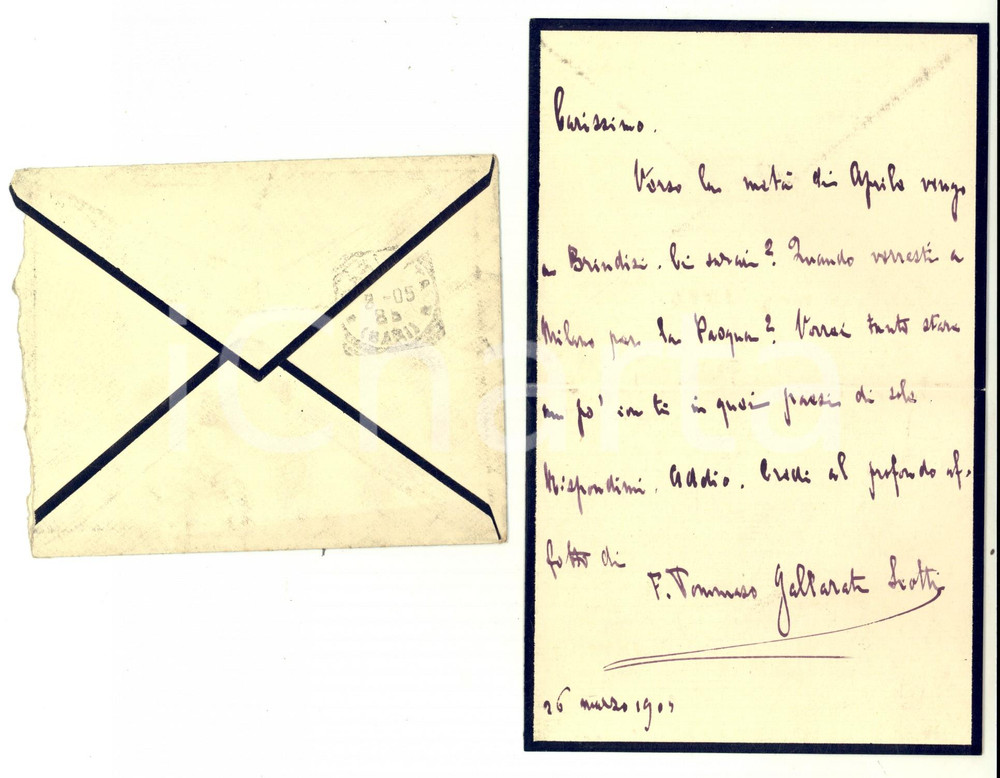 Carissimo.
Verso la metà di Aprile vengo
a Brindisi. Ci sarai? Quando verresti a
Milano per la Pasqua? Vorrei tanto stare
un po' con te in quei paesi di sole.
Rispondimi. Addio. Credi al profondo af-
fetto di
F. Tommaso Gallarati Scotti
26 marzo 1905
8-05
8S
(BARI)
iCharta